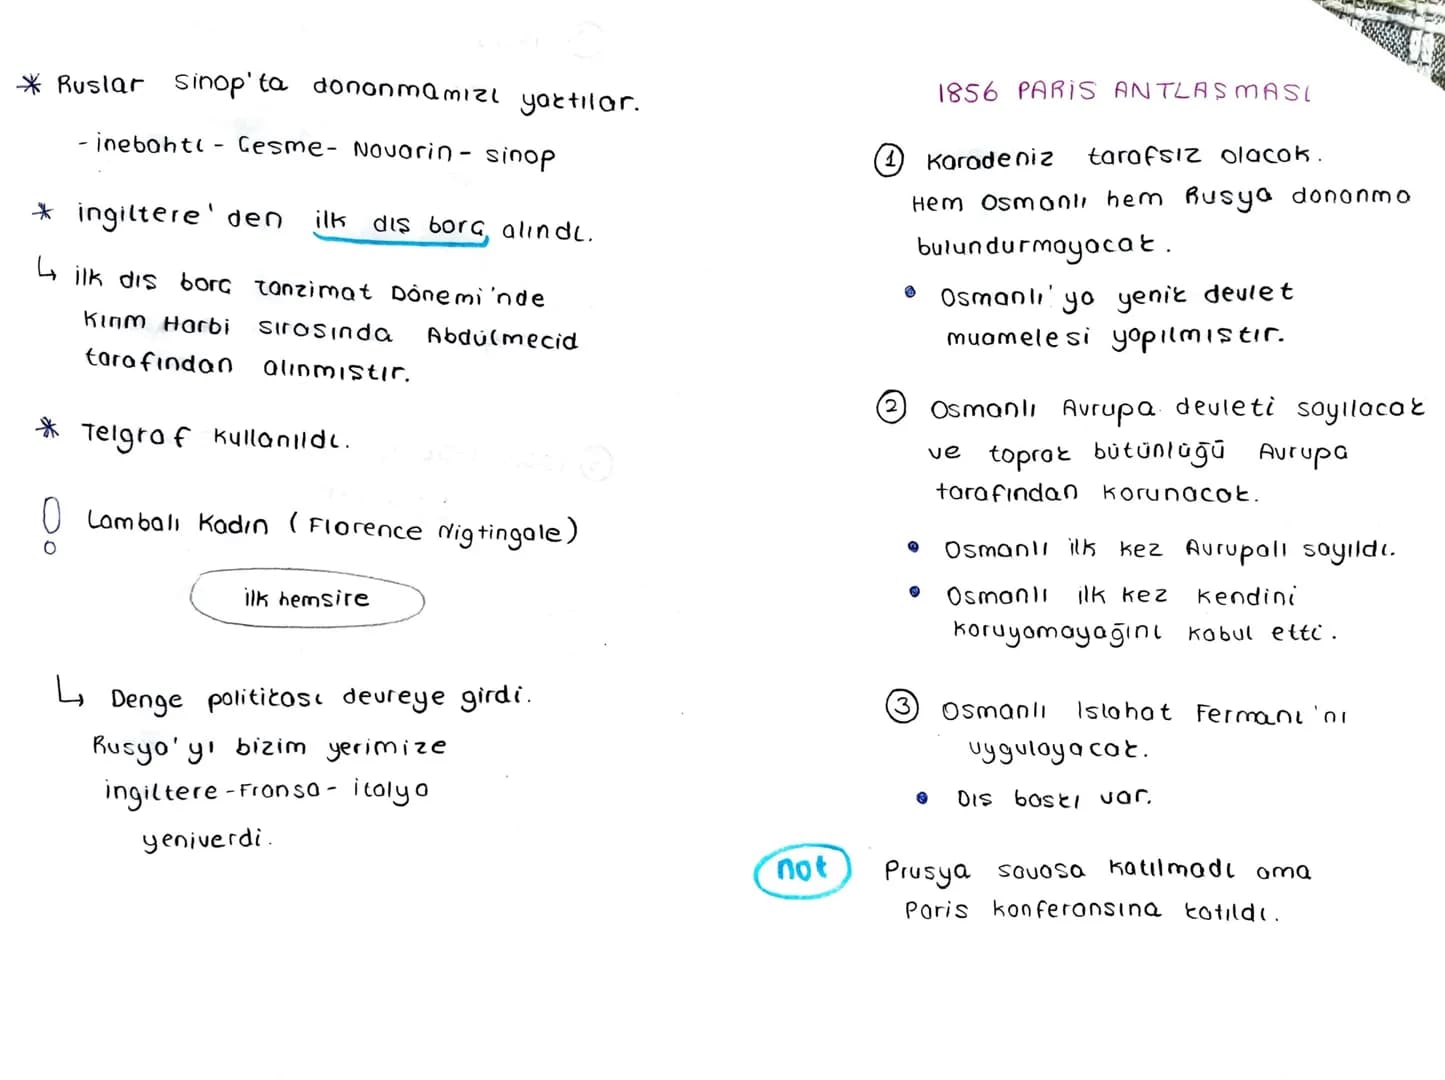 * Ruslar Sinop'ta donanmamızı yaktılar.
- inebahtı - Çesme - Navarin - sinop
* ingiltere'den ilk dıs borç alındı.
↳ ilk dıs borç Tanzimat Dönemi'nde
Kırım Harbi sırasında Abdülmecid
tarafından alınmıstır.
* Telgraf kullanıldı.
! Lambalı Kadın (Florence Nigtingale)
ilk hemsire
↳ Denge politikası devreye girdi.
Rusya'yı bizim yerimize
ingiltere - Fransa - italya
yeniverdi.
1856 PARİS ANTLAŞMASI
① Karadeniz tarafsız olacak.
Hem Osmanlı hem Rusya donanma
bulundurmayacak.
• Osmanlı'ya yenik devlet
muamelesi yapılmıstır.
② Osmanlı Avrupa devleti sayılacak
ve toprak bütünlüğü Avrupa
tarafından korunacak.
• Osmanlı ilk kez Avrupalı sayıldı.
• Osmanlı ilk kez kendini
koruyamayağını kabul etti.
③ Osmanlı Islahat Fermanı'nı
uygulayacak.
• Dıs baskı var.
not Prusya savasa katılmadı ama
Paris konferansına katıldı.